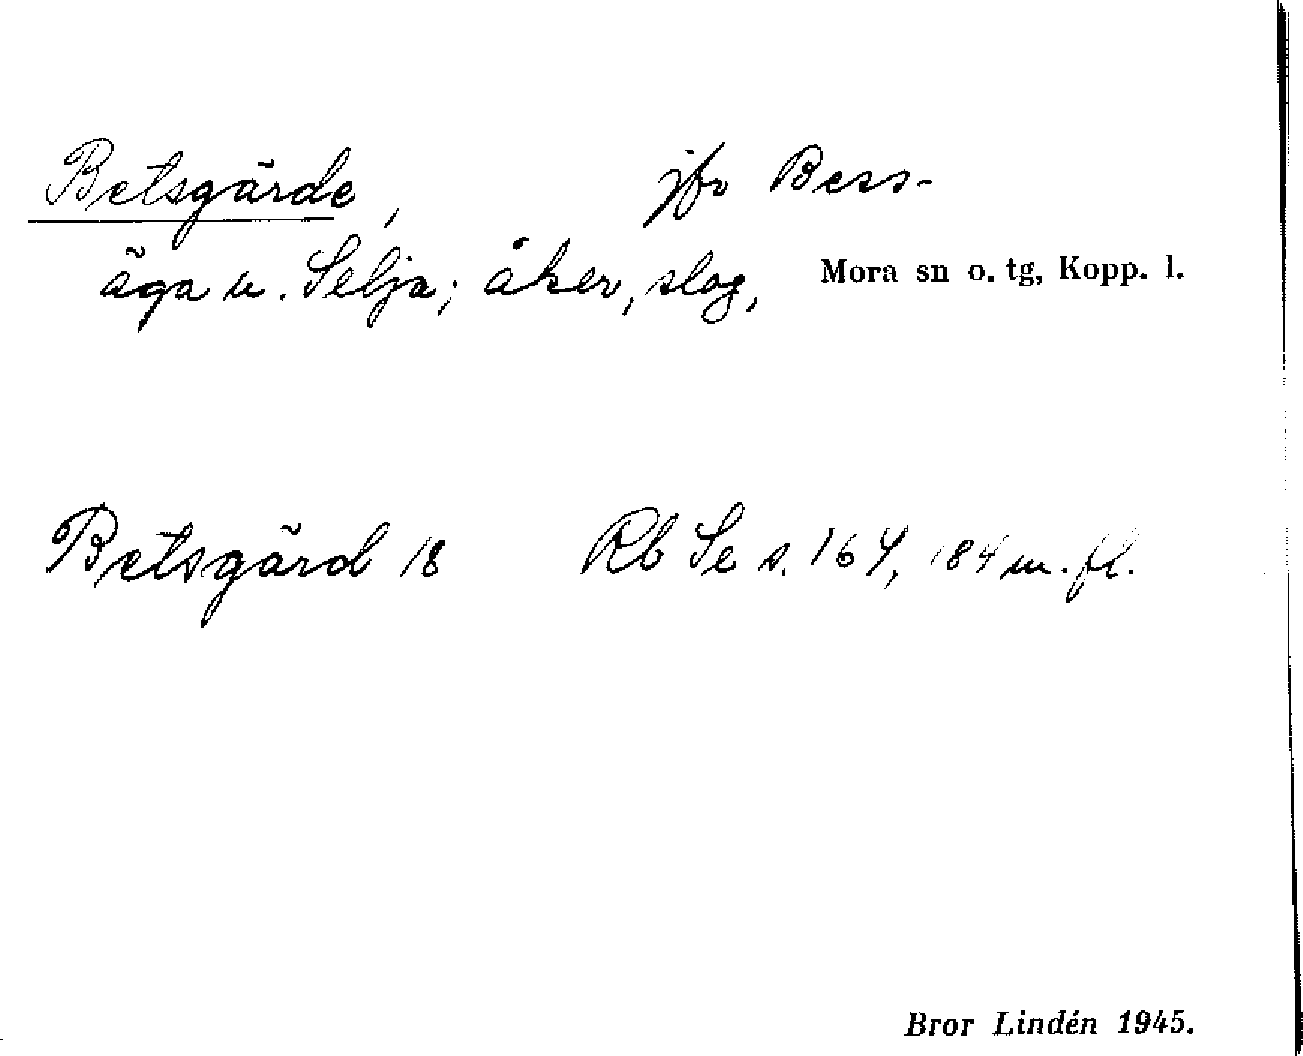 Betsgärde, jfr Bess-
äga u. Selja; åker, slog, Mora sn o. tg, Kopp. l.
Betsgärd 18 Rb Se s. 164, 184 m. fl.
Bror Lindén 1945.